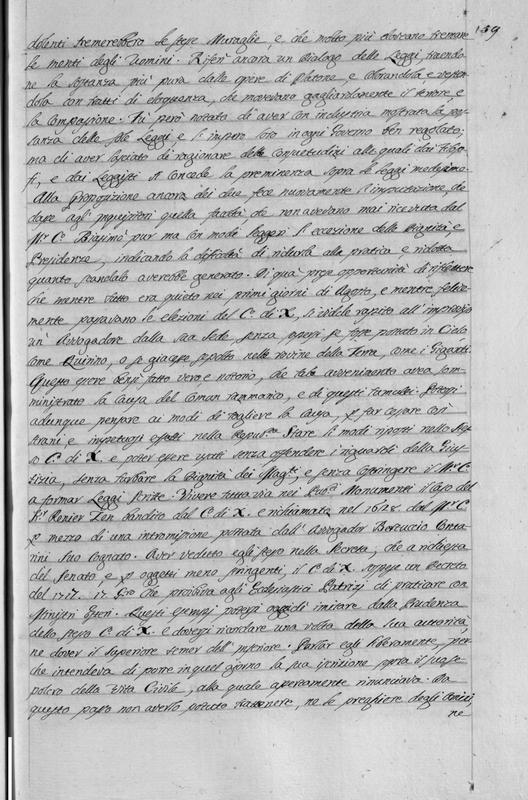 159
dolenti tremerebbero le stesse Muraglie, e che molto più doveano tremare
le menti degli Uomini. Riferì ancora un Dialogo delle Leggi, traendo
ne la sostanza più pura dalle opere di Platone e adornandola e vesten
dola con tratti di eloquenza, che movevano gagliardamente il tenore, e
la Composizione. Fu però notato di aver con industria mostrata la pos
sanza delle sole Leggi e l'impero loro in ogni Governo ben regolato;
ma di aver lasciato di ragionare delle consuetudini alle quali dai Filoso
fi, e dai Leggisti si concede la preminenza sopra le leggi medesime.
Alla Proposizione ancora dei due fece nuovamente l'imputazione, di
dare agl'inquisitori quella facoltà che non avevano mai ricevuta dal
Mr. Co. Biasimò pur ma con modi leggeri l'eccezione della Bontà, e
Presidenze, indicando la difficoltà di ridurla alla pratica e ridotta
quanto scandalo averebbe generato. Di quà prese opportunità di riflettere
che mentre tutto era quieto nei primi giorni di Agosto, e mentre felice
mente passavano le elezioni del C. di X. si vidde rapito all'improvviso
un Avvogadore dalla sua Sede senza sapersi se fosse portato in Cielo
come Quirino, o se giacesse sepolto nelle rovine della Terra, come i Giganti.
Questo essere bensì fatto vero e notorio, che tale avvenimento avea som
ministrato la causa del comun rammarico, e di questi tumulti. Doversi
adunque pensare ai modi di togliere la causa, p. far cessare così
strani e impetuosi effetti nella Repub.ca Stare li modi riposti nello stes
so C. di X. e poter essere usati senza offendere i riguardi della Giu
stizia, senza turbare la Dignità dei Mag.ti, e senza costringere il Mr. C.
a formar Leggi strette. Vivere tuttavia nei Pub.ci Monumenti il caso del
Kr. Renier Zen bandito dal C. di X. e richiamato nel 1628. dal Mr. C.
p. mezzo di una intromissione portata dall'Avvogador Bertuccio Conta
rini suo Cognato. Aver veduto egli stesso nella Secreta, che a richiesta
del Senato e p. oggetti meno stringenti, il C. di X. sospese un Decreto
del 1717. 17. che proibiva agli Ecclesiastici Patrizj di praticare con
Ministri Esteri. Questi esempj potersi oggidì imitare dalla Prudenza
dello stesso C. di X. e doversi ricordare una volta della sua autorità,
ne dover il superiore temer dell'inferiore. Parlar egli liberamente, per
che intendeva di porre in quel giorno la sua iscrizione sopra il suo se
polcro della Vita Civile, alla quale apertamente rinunciava. Da
questo passo non averlo potuto trattenere, ne le preghiere degli Amici,
ne